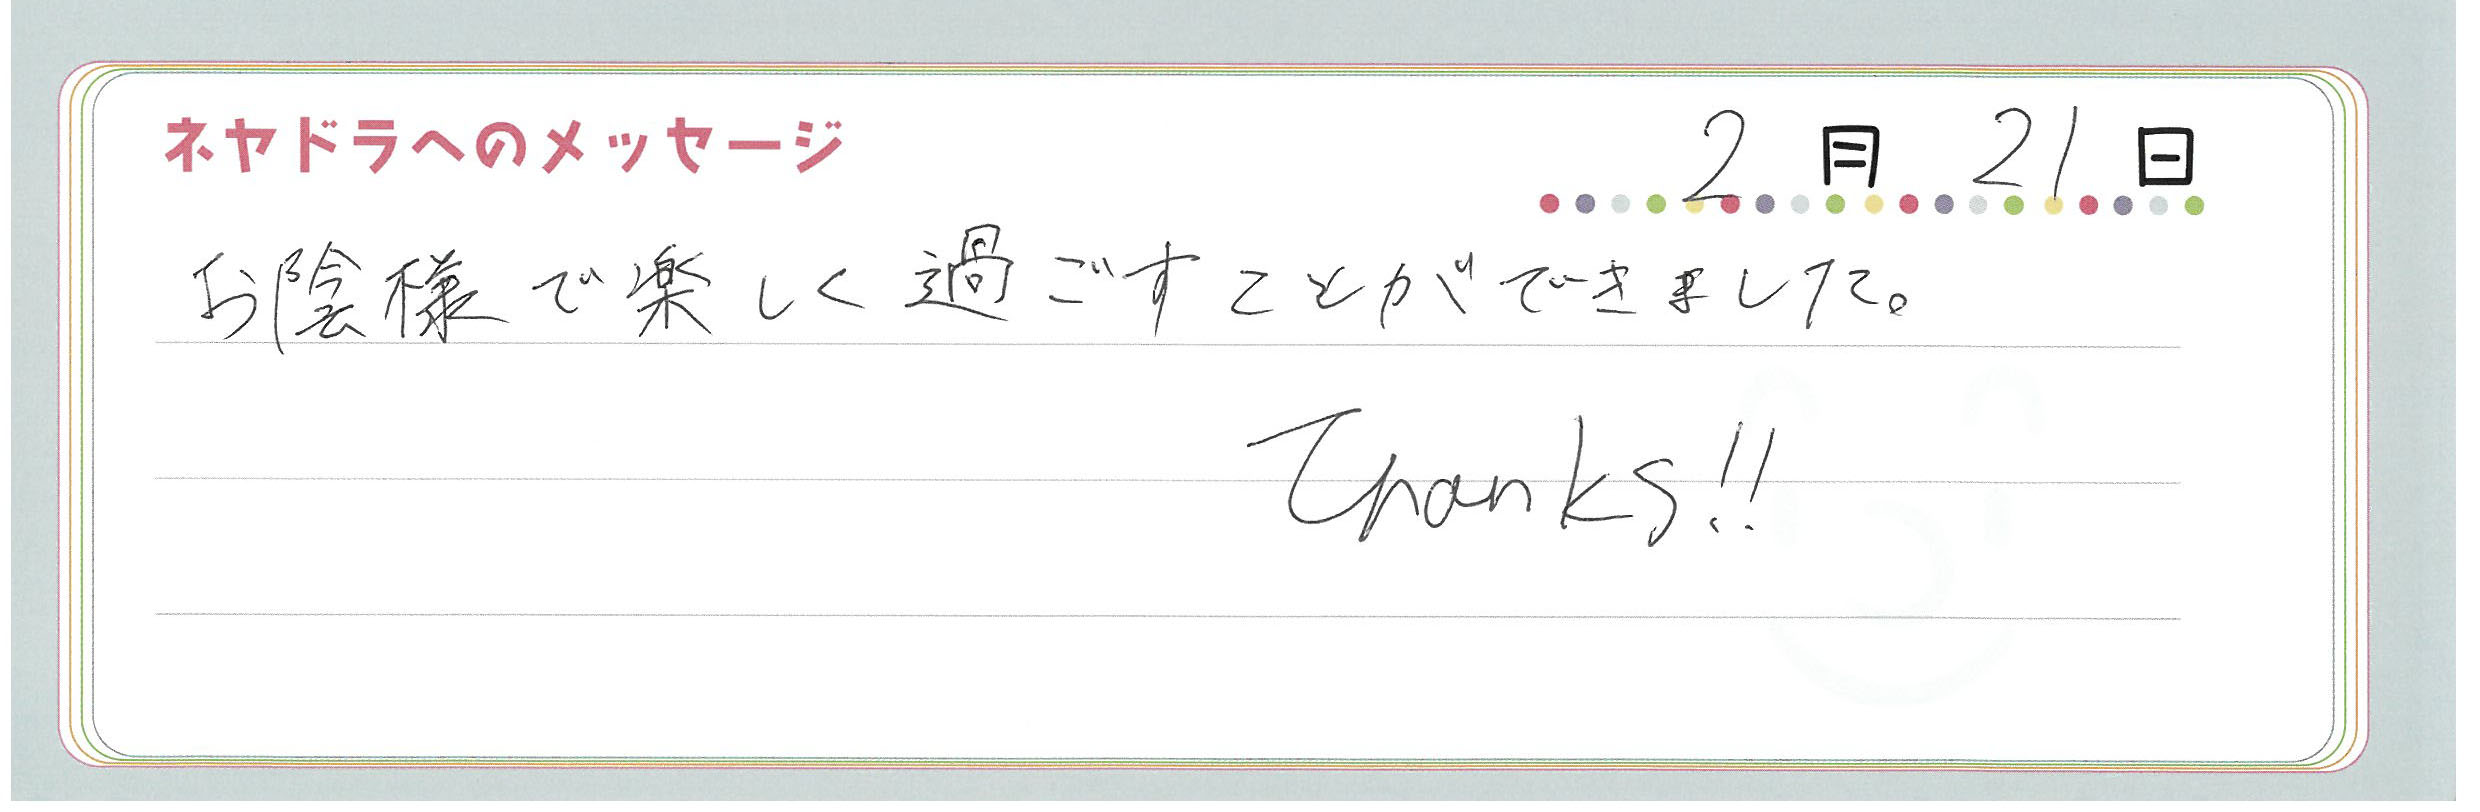 ネヤドラへのメッセージ
2月21日
お陰様で楽しく過ごすことができました。
Thanks!!